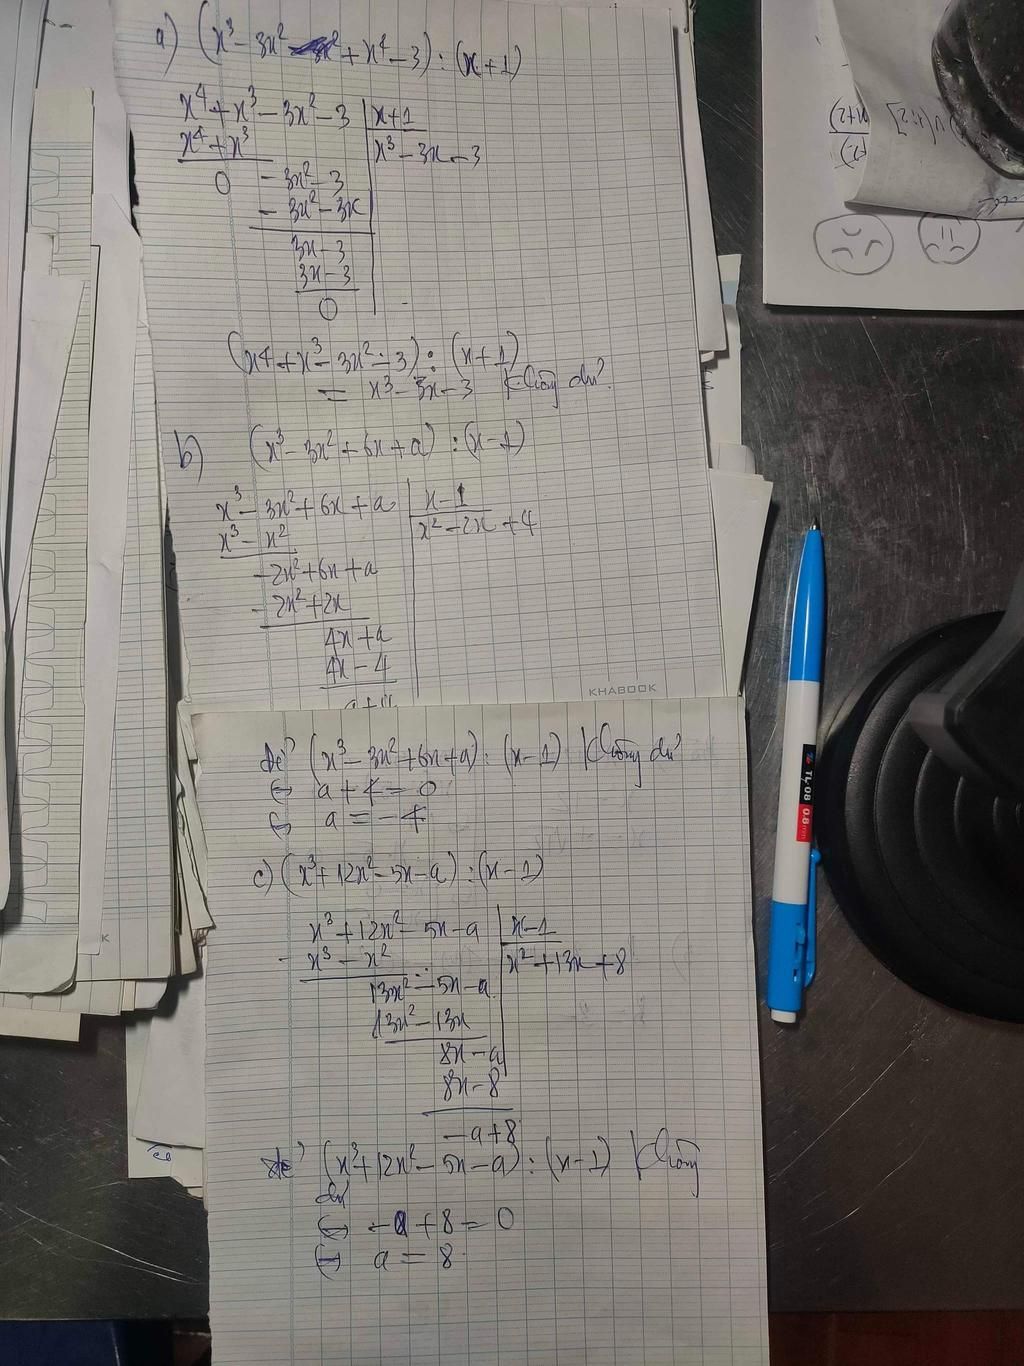 a) (x³ - 3x² + x⁴ - 3) : (x+1)
x⁴ + x³ - 3x² - 3 | x+1
x⁴ + x³ | x³ - 3x - 3
0 - 3x² - 3
- 3x² - 3x
3x - 3
3x - 3
0
(x⁴ + x³ - 3x² - 3) : (x+1)
= x³ - 3x - 3 không dư
b) (x³ - 3x² + 6x + a) : (x - 1)
x³ - 3x² + 6x + a | x - 1
x³ - x² | x² - 2x + 4
- 2x² + 6x + a
- 2x² + 2x
4x + a
4x - 4
a + 4
KHABOOK
để (x³ - 3x² + 6x + a) : (x - 1) không dư
⇔ a + 4 = 0
⇔ a = - 4
c) (x³ + 12x² - 5x - a) : (x - 1)
x³ + 12x² - 5x - a | x - 1
- x³ - x² | x² + 13x + 8
13x² - 5x - a
13x² - 13x
8x - a
8x - 8
- a + 8
để (x³ + 12x² - 5x - a) : (x - 1) không
dư
⇔ - a + 8 = 0
⇔ a = 8
TL 08 0.8mm